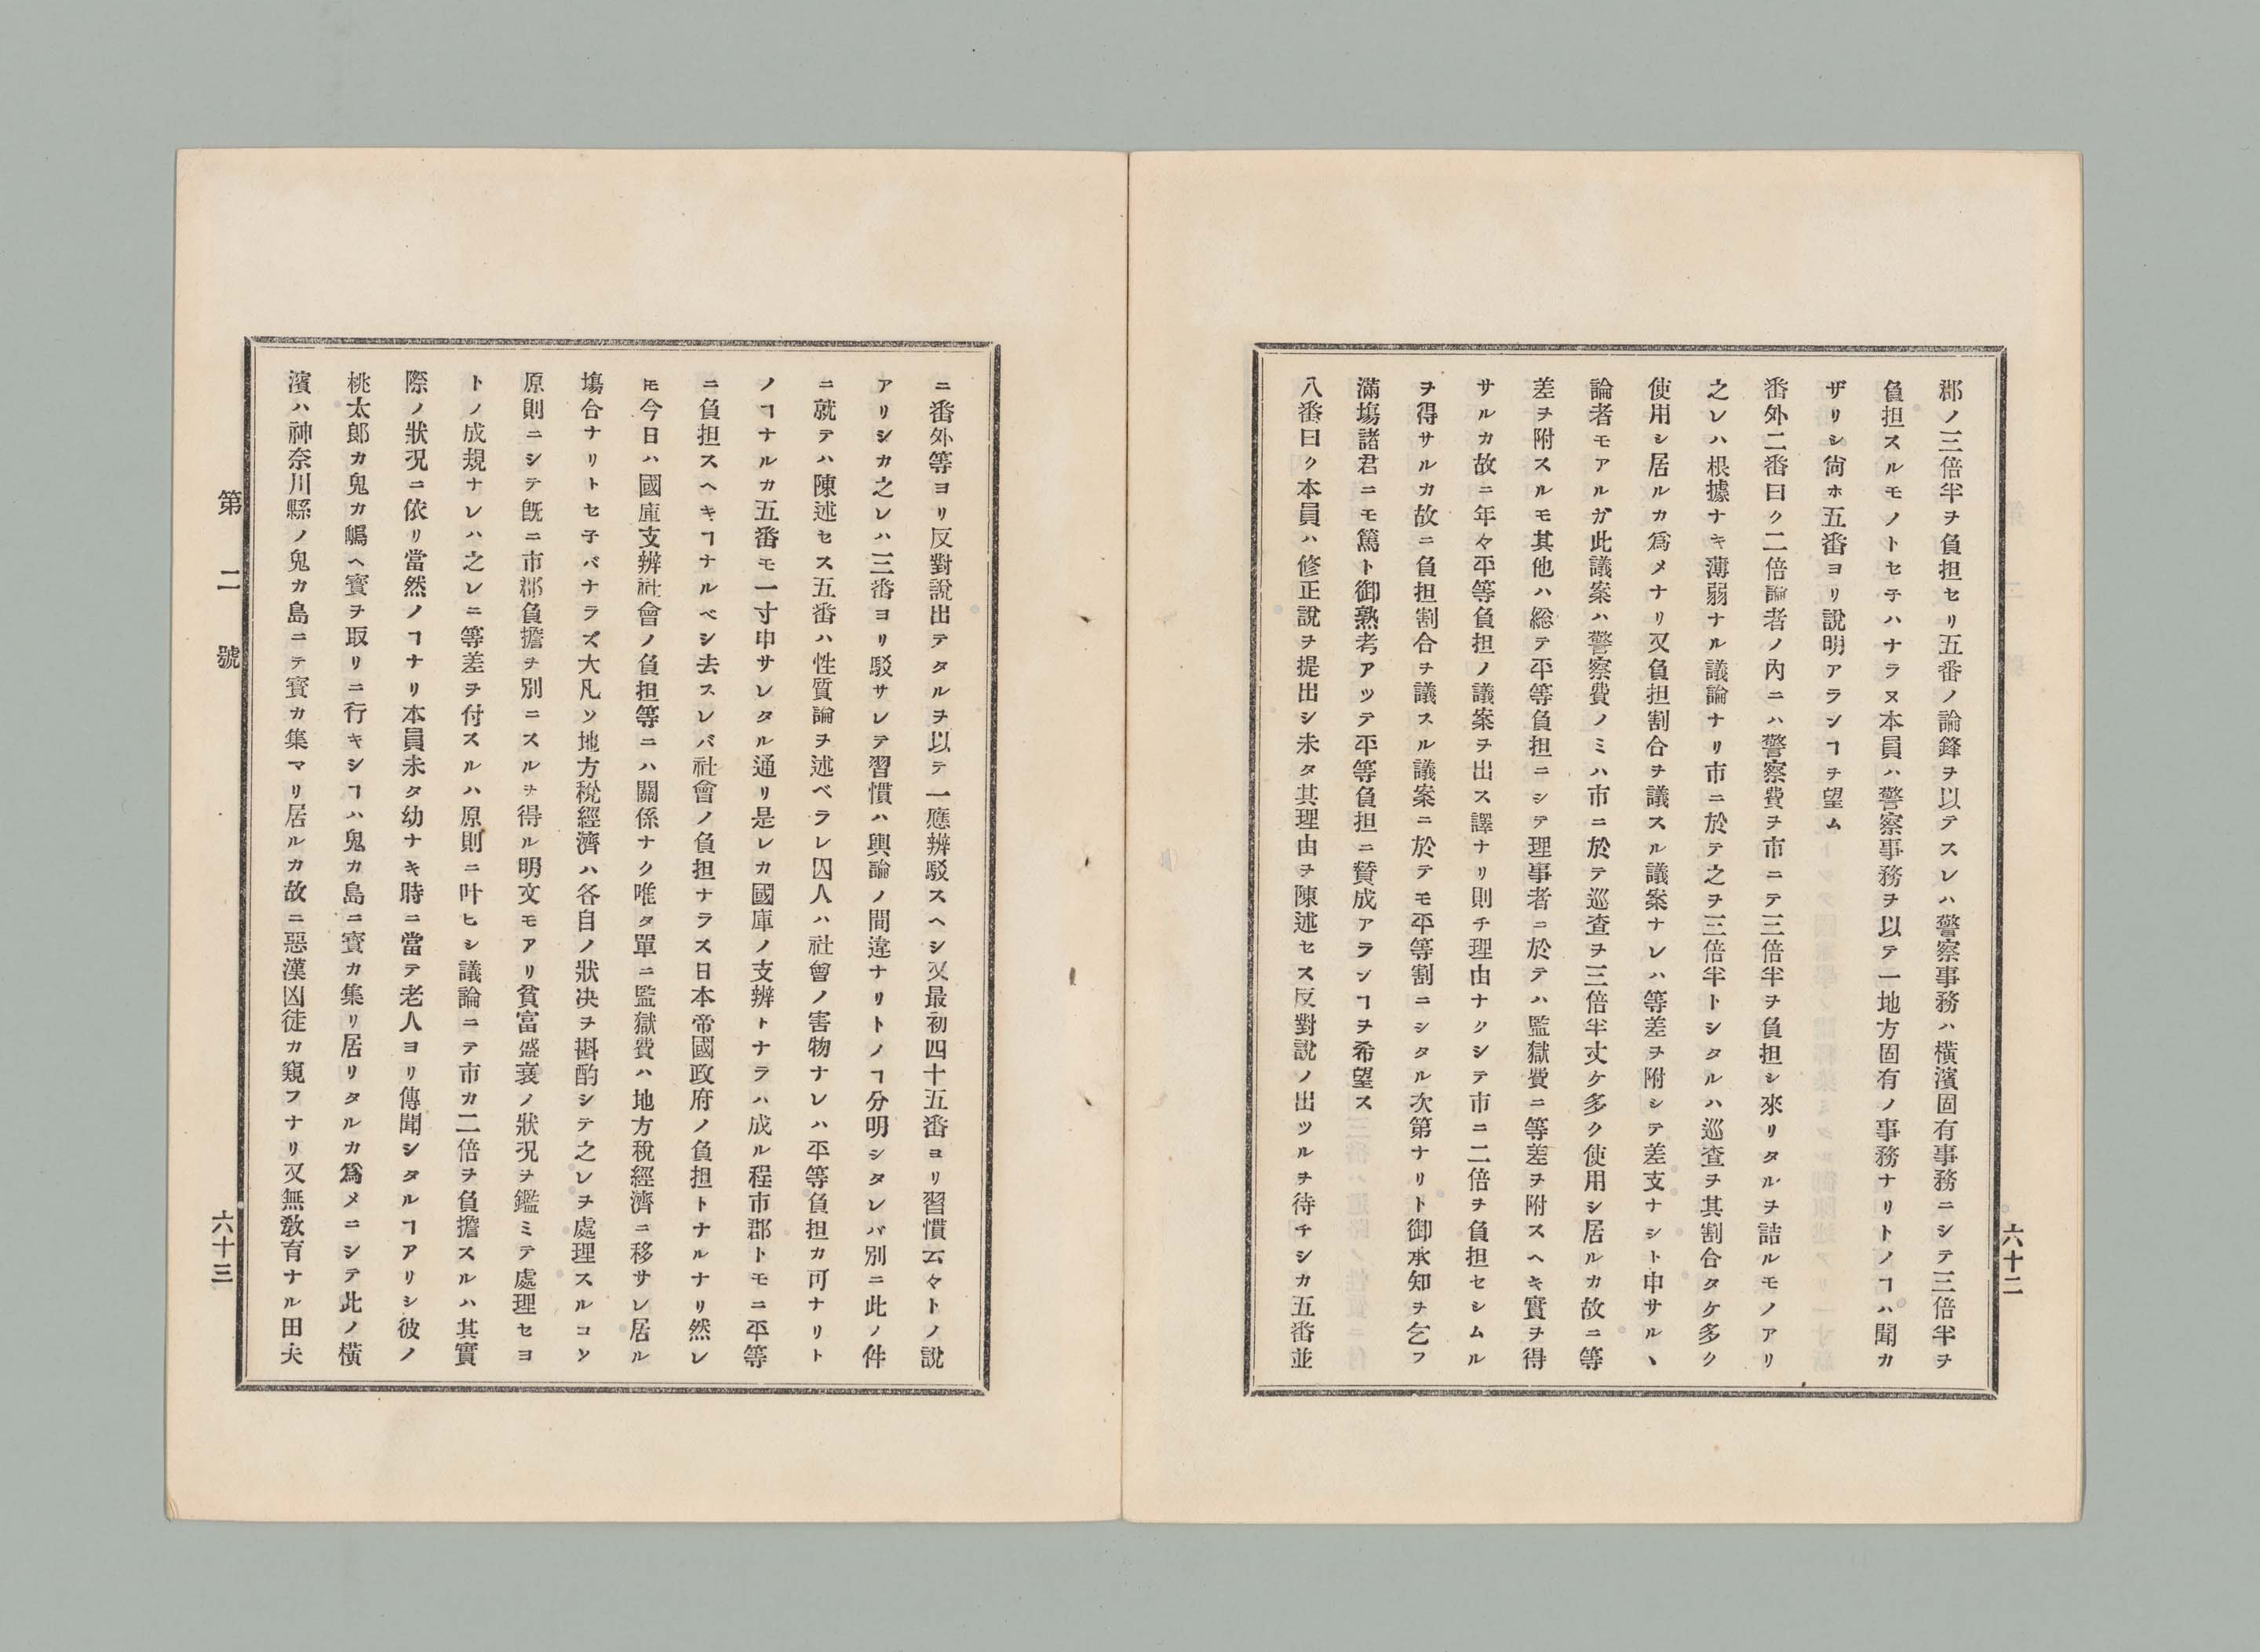 郡ノ三倍半ヲ負担セリ五番ノ論鋒ヲ以テスレハ警察事務ハ横濱固有事務ニシテ三倍半ヲ
負担スルモノトセテハナラヌ本員ハ警察事務ヲ以テ一地方固有ノ事務ナリトノヿハ聞カ
ザリシ尙ホ五番ヨリ說明アランヿヲ望ム
番外二番曰ク二倍論者ノ內ニハ警察費ヲ市ニテ三倍半ヲ負担シ來リタルヲ詰ルモノアリ
之レハ根據ナキ薄弱ナル議論ナリ市ニ於テ之ヲ三倍半トシタルハ巡査ヲ其割合タケ多ク
使用シ居ルカ爲メナリ又負担割合ヲ議スル議案ナレハ等差ヲ附シテ差支ナシト申サルヽ
論者モアルガ此議案ハ警察費ノミハ市ニ於テ巡査ヲ三倍半丈ケ多ク使用シ居ルカ故ニ等
差ヲ附スルモ其他ハ総テ平等負担ニシテ理事者ニ於テハ監獄費ニ等差ヲ附スヘキ實ヲ得
サルカ故ニ年々平等負担ノ議案ヲ出ス譯ナリ則チ理由ナクシテ市ニ二倍ヲ負担セシムル
ヲ得サルカ故ニ負担割合ヲ議スル議案ニ於テモ平等割ニシタル次第ナリト御承知ヲ乞フ
滿塲諸君ニモ篤ト御熟考アツテ平等負担ニ賛成アランヿヲ希望ス
八番曰ク本員ハ修正說ヲ提出シ未タ其理由ヲ陳述セス反對說ノ出ツルヲ待チシカ五番並
六十二
ニ番外等ヨリ反對說出テタルヲ以テ一應辨駁スヘシ又最初四十五番ヨリ習慣云々トノ說
アリシカ之レハ三番ヨリ駁サレテ習慣ハ輿論ノ間違ナリトノヿ分明シタレバ別ニ此ノ件
ニ就テハ陳述セス五番ハ性質論ヲ述ベラレ囚人ハ社會ノ害物ナレハ平等負担カ可ナリト
ノヿナルカ五番モ一寸申サレタル通リ是レカ國庫ノ支辨トナラハ成ル程市郡トモニ平等
ニ負担スヘキヿナルベシ去スレバ社會ノ負担ナラス日本帝國政府ノ負担トナルナリ然レ
𪜈今日ハ國庫支辨社會ノ負担等ニハ關係ナク唯タ單ニ監獄費ハ地方稅經濟ニ移サレ居ル
塲合ナリトセ子バナラズ大凡ソ地方稅經濟ハ各自ノ狀決ヲ斟酌シテ之レヲ處理スルコソ
原則ニシテ旣ニ市郡負擔ヲ別ニスルヲ得ル明文モアリ貧富盛衰ノ狀况ヲ鑑ミテ處理セヨ
トノ成規ナレハ之レニ等差ヲ付スルハ原則ニ叶ヒシ議論ニテ市カ二倍ヲ負擔スルハ其實
際ノ狀况ニ依リ當然ノヿナリ本員未タ幼ナキ時ニ當テ老人ヨリ傳聞シタルヿアリシ彼ノ
桃太郎カ鬼カ嶋ヘ寳ヲ取リニ行キシヿハ鬼カ島ニ寳カ集リ居リタルカ爲メニシテ此ノ橫
濱ハ神奈川縣ノ鬼カ島ニテ寳カ集マリ居ルカ故ニ惡漢凶徒カ窺フナリ又無敎育ナル田夫
第二號
六十三